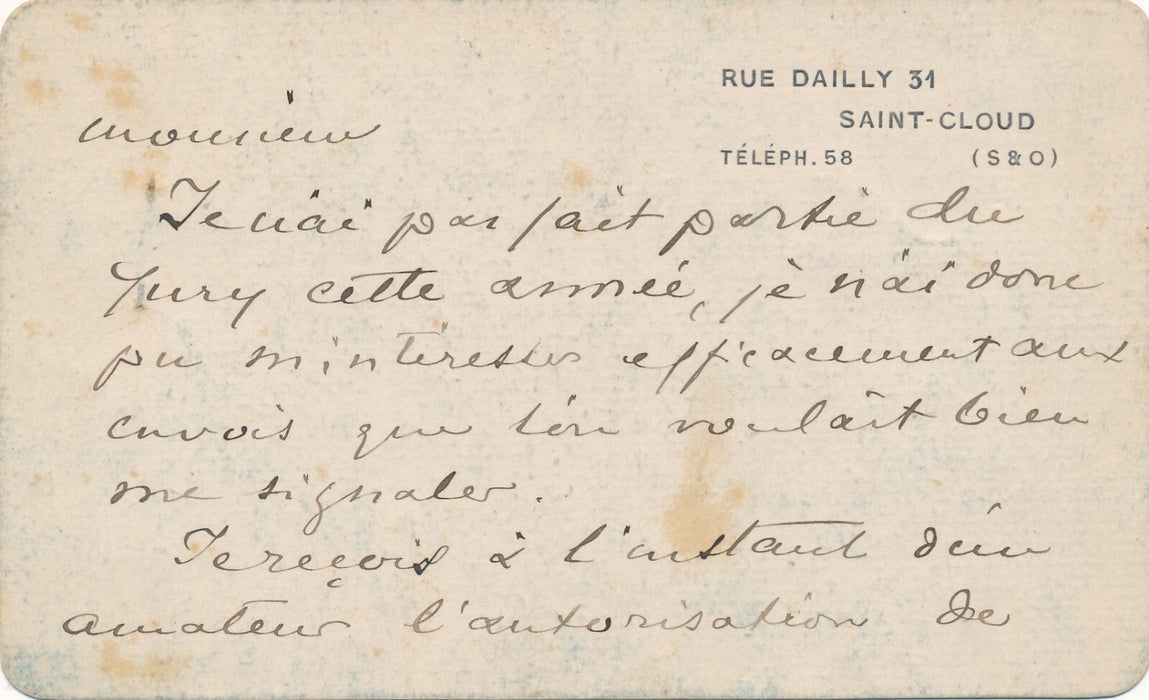 RUE DAILLY 31
SAINT-CLOUD
TÉLÉPH. 58 (S&O)
monsieur
Je n'ai pas fait partie du
Jury cette année, je n'ai donc
pu m'intéresser efficacement aux
envois que l'on voulait bien
me signaler.
Je reçois à l'instant d'un
amateur l'autorisation de